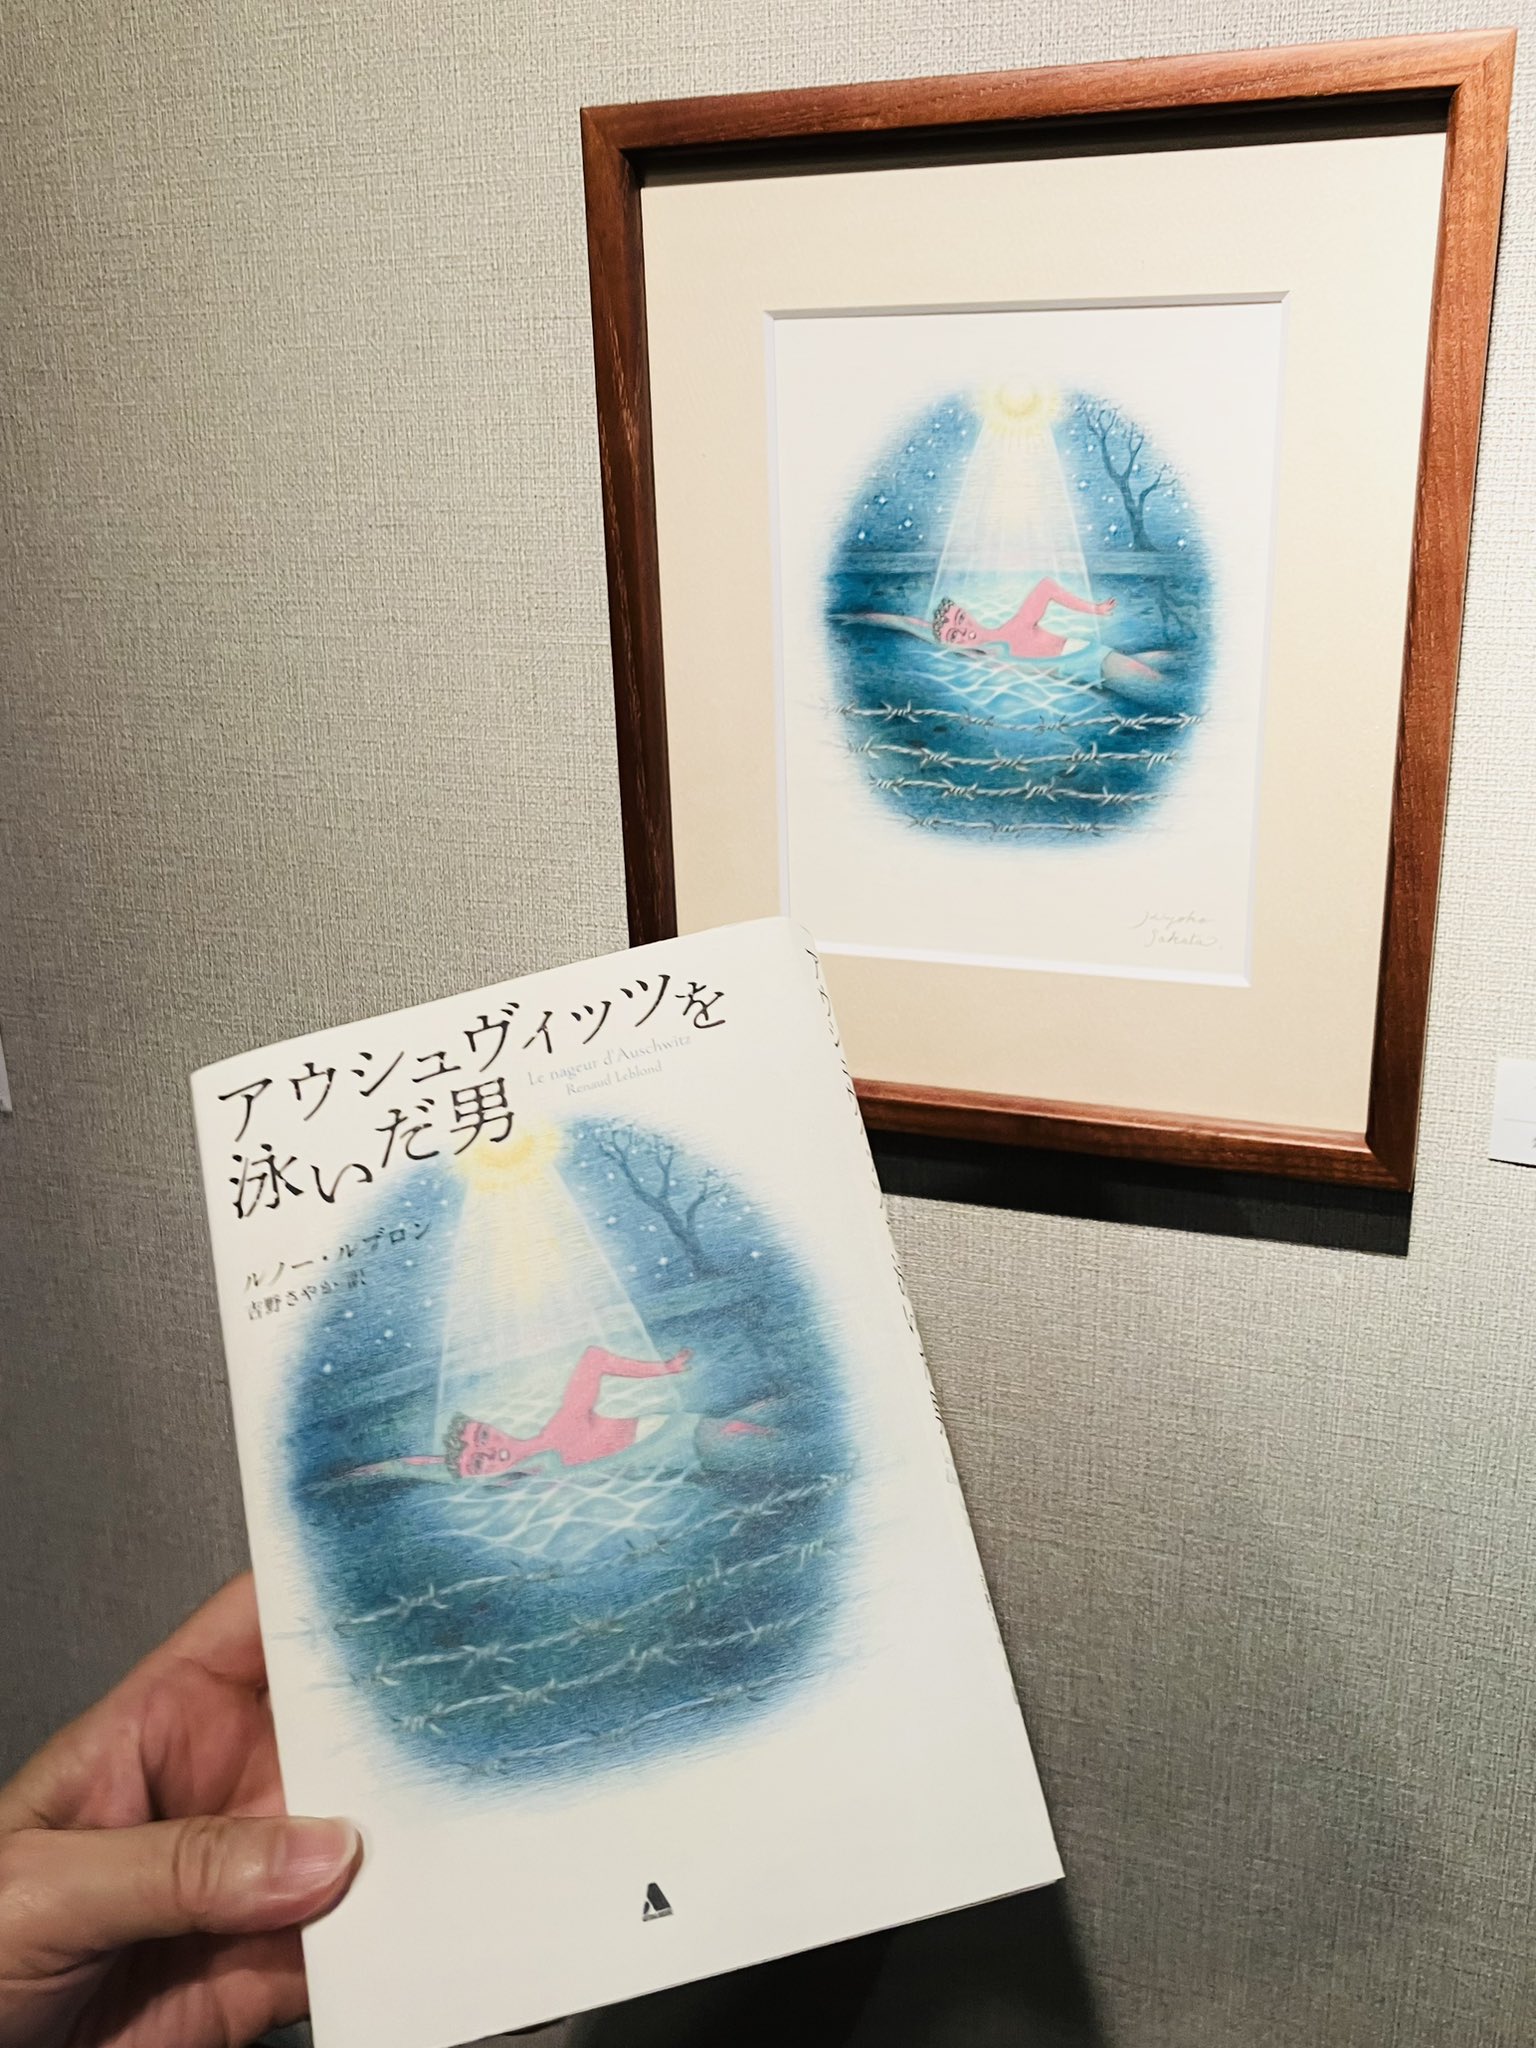 アウシュヴィッツを
泳いだ男
Le nageur d'Auschwitz
Renaud Leblond
ルノー・ルブロン
吉野さやか 訳
Sakata